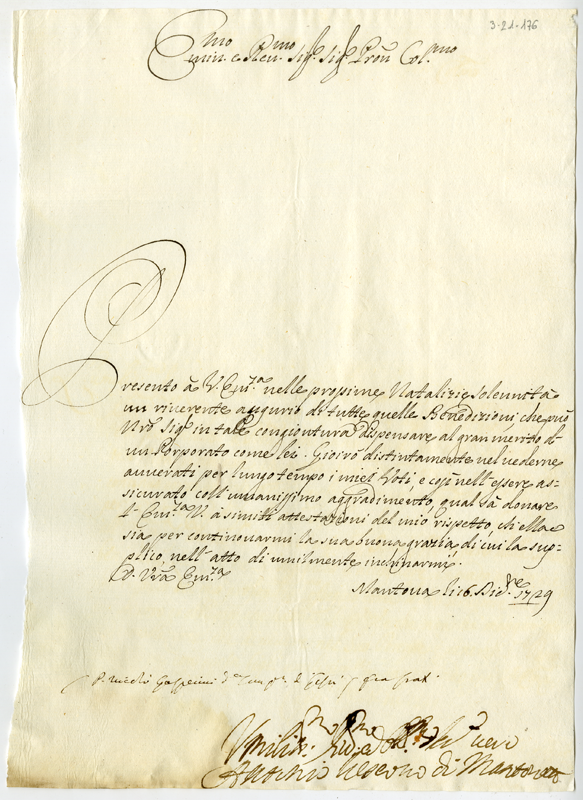 3-21-176
Emin.mo e Rev.mo Sig.r Sig.r Pron Col.mo
Presento à V. Em.za nelle prossime Natalizie solennità
un riverente augurio di tutte quelle Benedizioni che può
Nro Sig.re in tale congiontura dispensare al gran merito di
un Porporato come lei. Gioirò distintamente nel vederne
avverati per lungo tempo i miei Voti, e così nell'essere as-
sicurato coll'umanissimo aggradimento, qual sà donare
l'Em.za V. à simili attestazioni del mio rispetto, ch'ella
sia per continovarmi la sua buona grazia di cui la sup-
plico nell'atto di umilmente inchinarmi.
D. Vra Em.za
Mantova li 16. Dic.bre 1729
P. Gasperini
Umiliss. Serv.re
Antonio Vescovo di Mantova